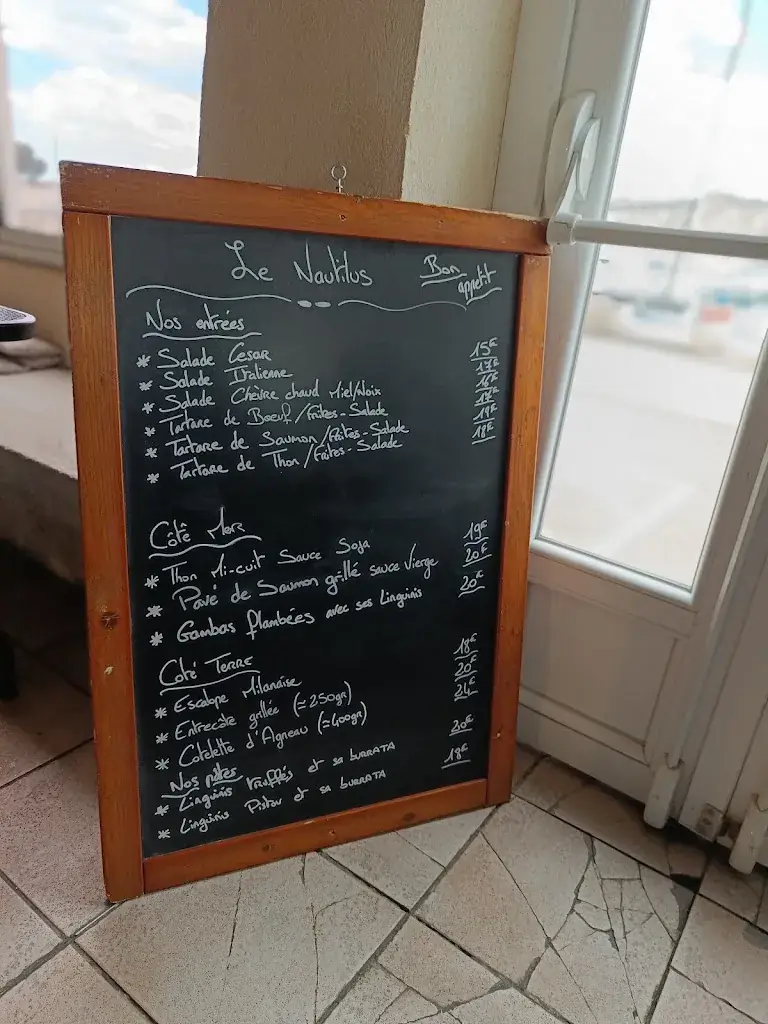 Le Nautilus Bon appetit
Nos entrées
* Salade Cesar 15€
* Salade Italienne 17€
* Salade Chèvre chaud Miel/Noix 16€
* Tartare de Boeuf/Frites-Salade 17€
* Tartare de Saumon/Frites-Salade 19€
* Tartare de Thon/Frites-Salade 18€
Côté Mer
* Thon Mi-cuit Sauce Soja 19€
* Pavé de Saumon grillé sauce Vierge 20€
* Gambas flambées avec ses Linguinis 20€
Coté Terre
* Escalope Milanaise 18€
* Entrecôte grillée (≃250gr) 20€
* Cotelette d'Agneau (≃400gr) 24€
Nos pâtes
* Linguinis truffés et sa burrata 20€
* Linguinis Pistou et sa burrata 18€